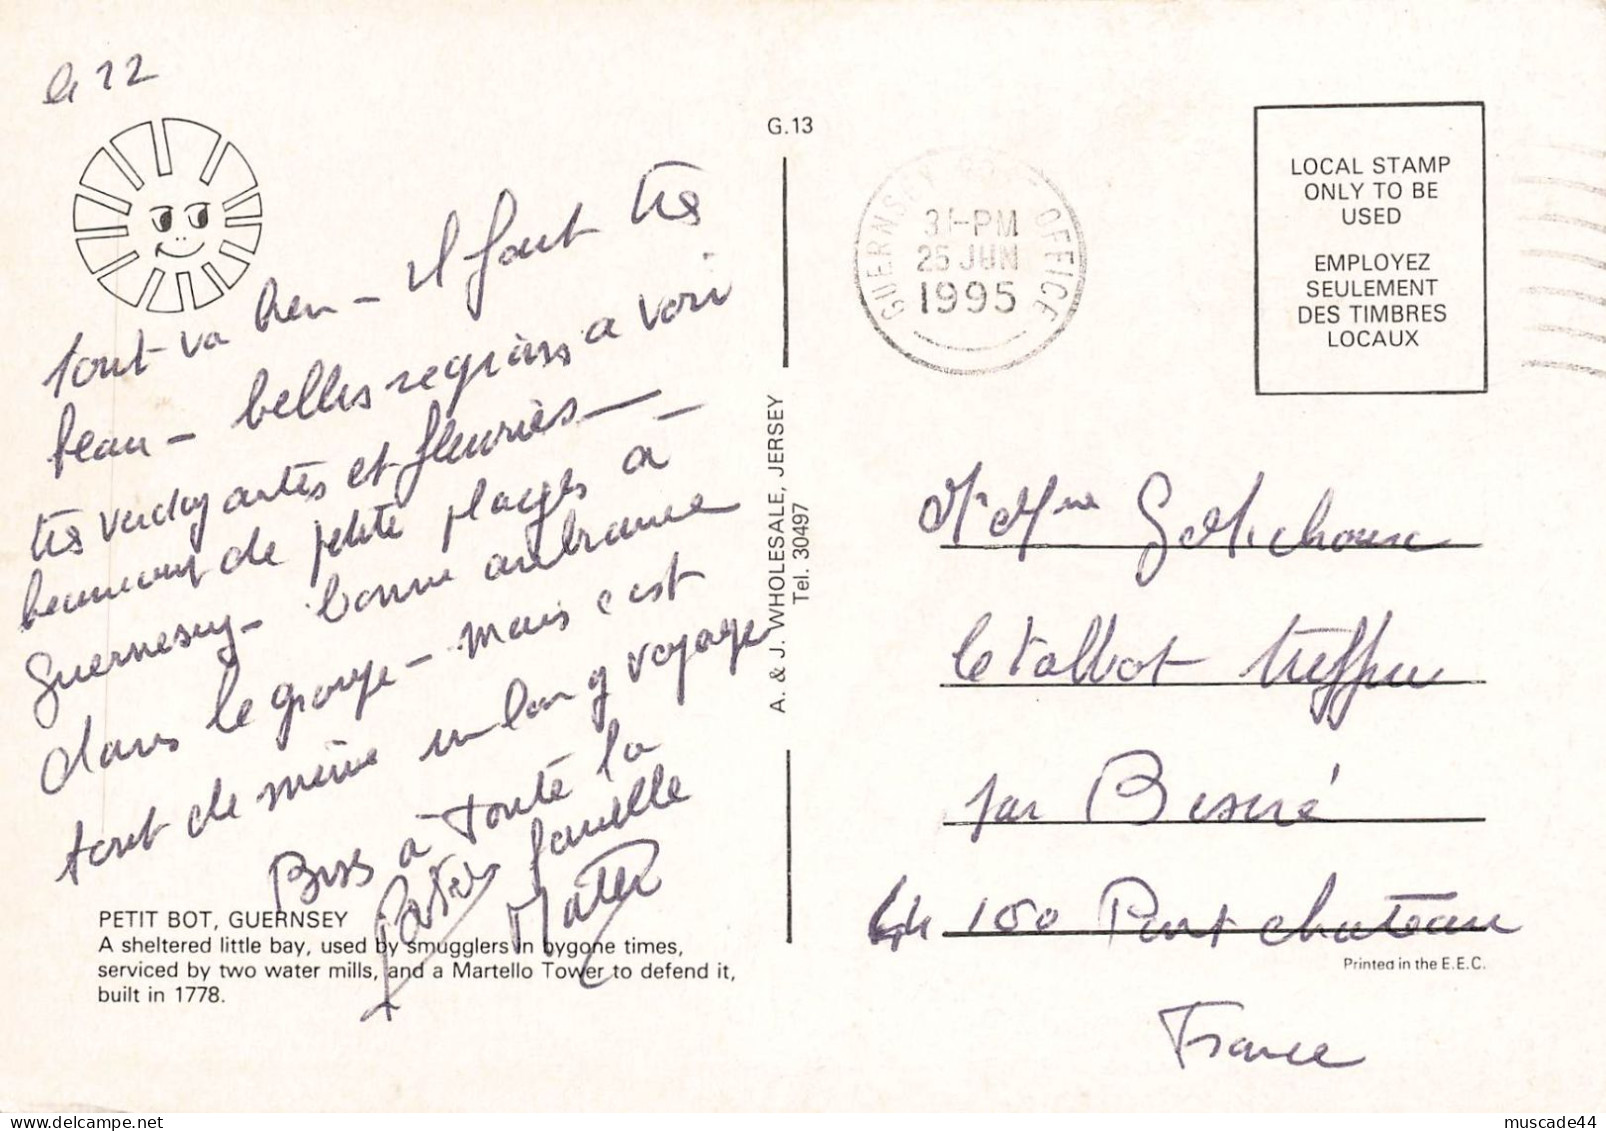 le 22
tout va bien - il fait très
beau - belles régions a voir
très verdoyantes et fleuries -
beaucoup de petite plages à -
Guernesey - bonne ambiance
dans le groupe - mais c'est
tout de même un long voyage
Bises à toute la
famille
PETIT BOT, GUERNSEY
A sheltered little bay, used by smugglers in bygone times,
serviced by two water mills, and a Martello Tower to defend it,
built in 1778.
G.13
A. & J. WHOLESALE, JERSEY
Tel. 30497
GUERNSEY POST OFFICE
PM
25 JUN
1995
LOCAL STAMP
ONLY TO BE
USED
EMPLOYEZ
SEULEMENT
DES TIMBRES
LOCAUX
Mr Mme
le Talbot
par
44 160 Pont chateau
Printed in the E.E.C.
France
muscade44